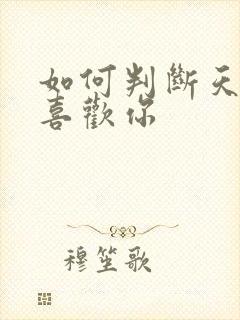 如何判斷天
喜歡你
穆笙歌